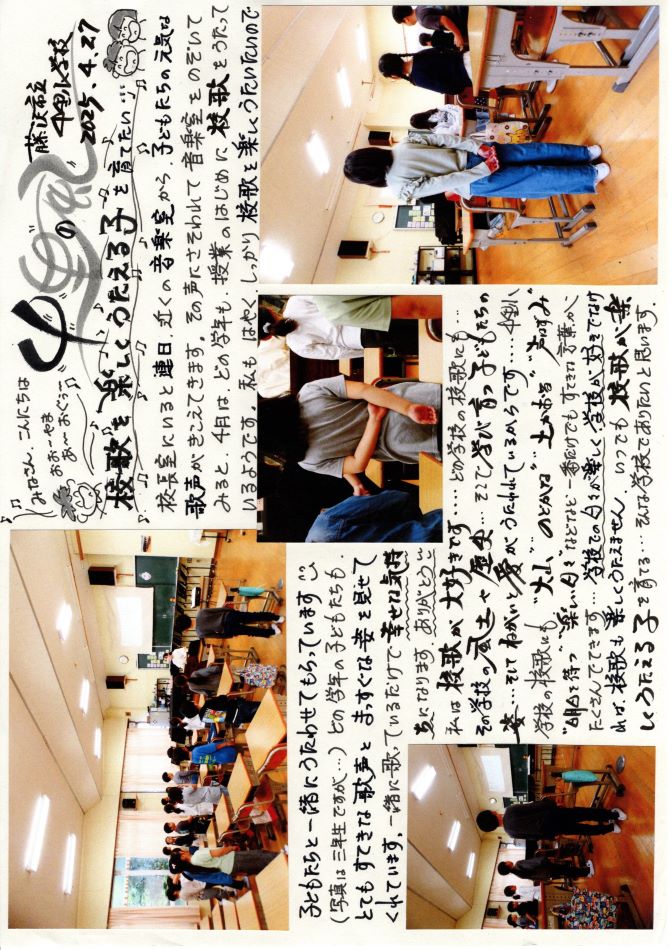 藤沢市立
小学校
2025.4.27
の
みなさん、こんにちは
おおーやま
あ〜おぐぅ〜
校歌を楽しくうたえる子を育てたい…
校長室にいると連日、近くの音楽室から、子どもたちの元気な
歌声がきこえてきます。その声にさそわれて音楽室をのぞいて
みると、4月は、どの学年も、授業のはじめに校歌をうたって
いるようです。私もはやく、しっかり校歌を楽しくうたいたいので
子どもたちと一緒にうたわせてもらっています
(写真は三年生ですが…)どの学年の子どもたちも、
とてもすてきな歌声とまっすぐな姿を見せて
くれています。一緒に歌っているだけで幸せな気持
ちになります。ありがとう
私は校歌が大好きです…どの学校の校歌にも…
その学校の風土や歴史…そこで学び育つ子どもたちの
姿…そしてねがいと愛がうたわれているからです…
学校の校歌にも"大山、のどかな""土かおる""声はずみ"
"を待つ""楽しい日々"などなど一番だけでもすてきな言葉が
たくさんでてきます…学校での日々が楽しく学校が好きでなけ
れば、校歌も楽しくうたえません。いつでも校歌が楽
しくうたえる子を育てる…そんな学校でありたいと思います。